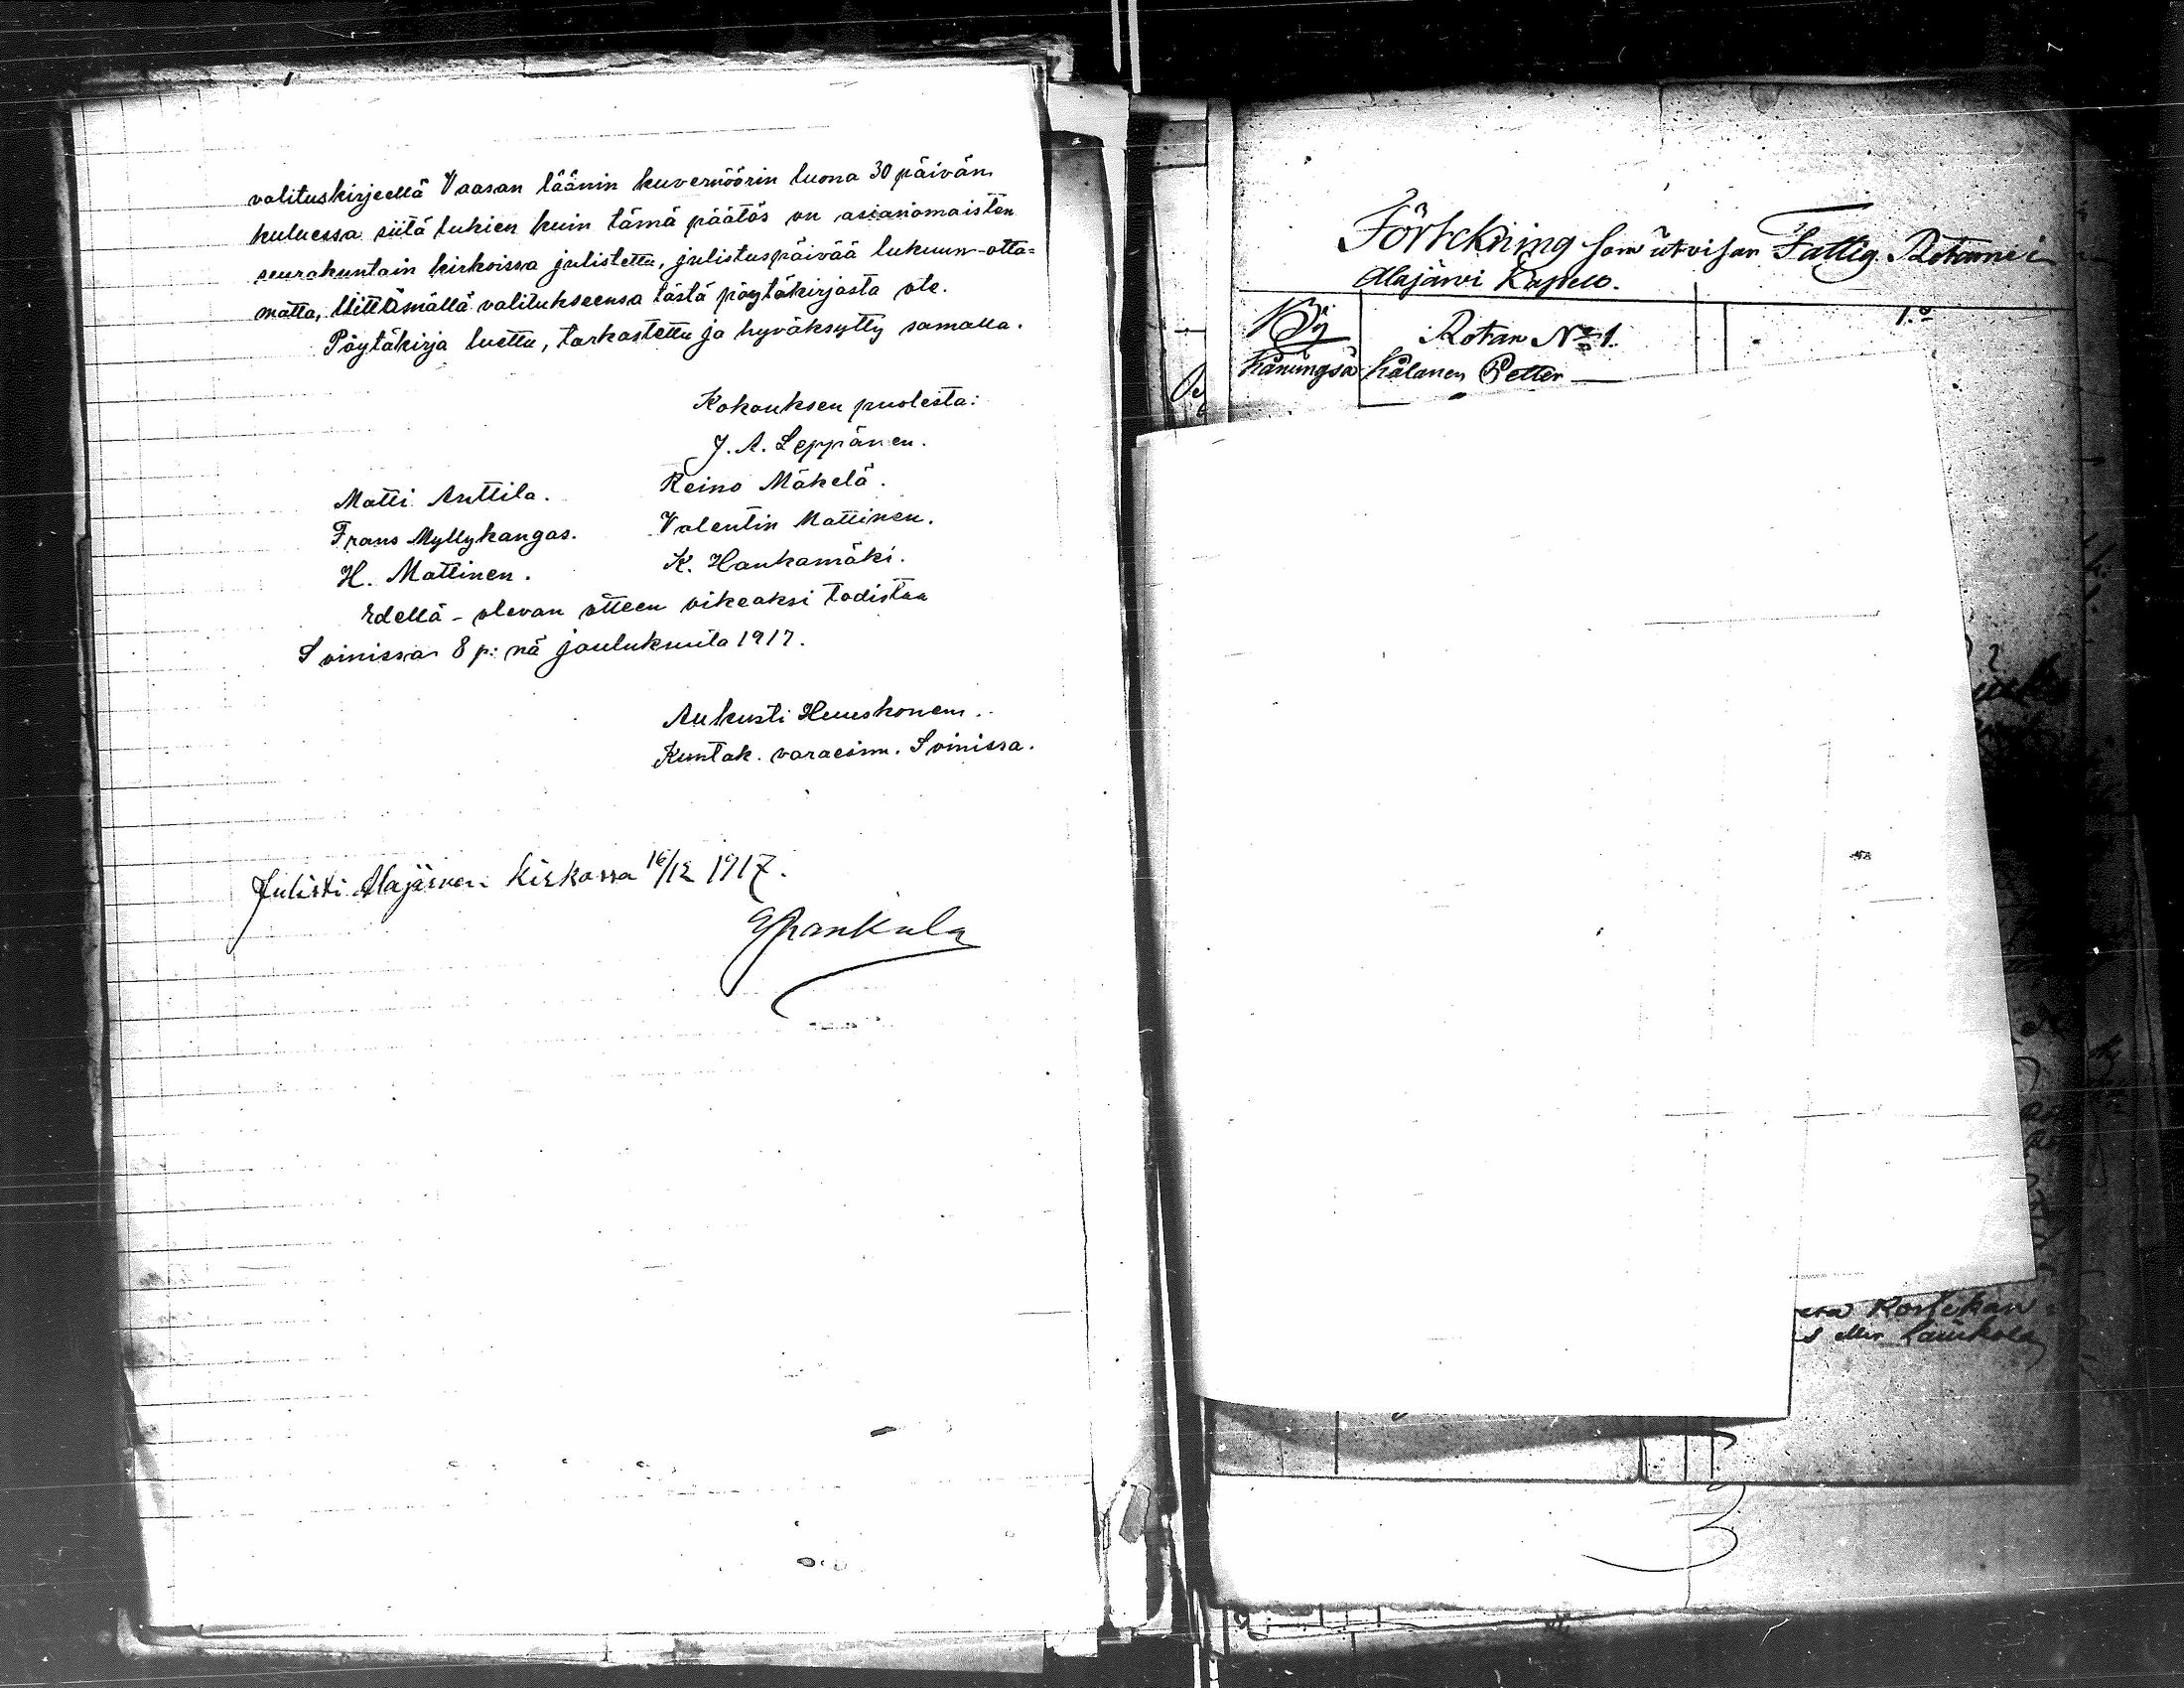 valituskirjeellä Vaasan läänin kuvernöörin luona 30 päivän
kuluessa siitä lukien kuin tämä päätös on asianomaisten
seurakuntain kirkoissa julistettu, julistuspäivää lukuun-otta=
matta, liittämällä valitukseensa tästä pöytäkirjasta ote.
Pöytäkirja luettu, tarkastettu ja hyväksytty samalla.
Kokouksen puolesta:
J. A. Leppänen.
Matti Anttila. Reino Mäkelä.
Frans Myllykangas. Valentin Mattinen.
H. Mattinen. K. Hankamäki.
Edellä-olevan otteen oikeaksi todistaa
Soinissa 8 p:nä joulukuuta 1917.
Aukusti Huuskonen.
Kuntak. varaesim. Soinissa.
Julisti Alajärven Kirkossa 16/12 1917.
Förtekning som utvisar Fattig Rotarne i
Alajärvi Kapell.
By Rotan No 1. 1.o
Kurungså Kålanen Petter
Kortekan
Laukola
3